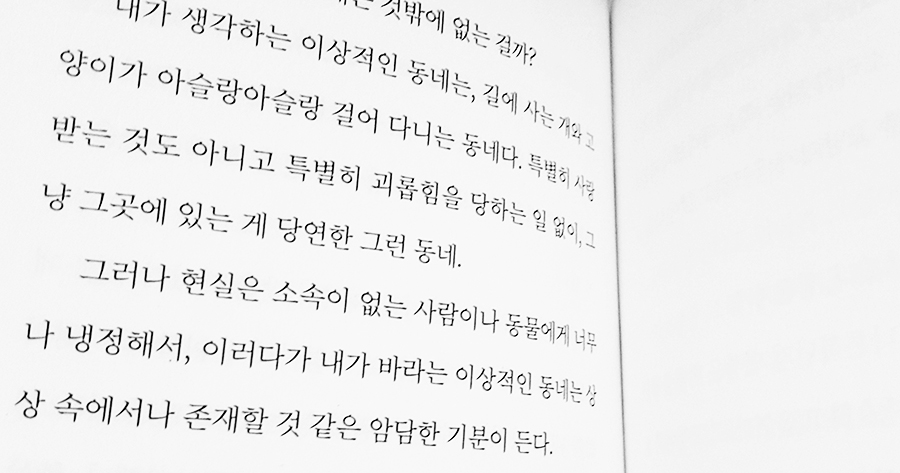 것밖에 없는 걸까?
내가 생각하는 이상적인 동네는, 길에 사는 개와 고
양이가 아슬랑아슬랑 걸어 다니는 동네다. 특별히 사랑
받는 것도 아니고 특별히 괴롭힘을 당하는 일 없이, 그
냥 그곳에 있는 게 당연한 그런 동네.
그러나 현실은 소속이 없는 사람이나 동물에게 너무
나 냉정해서, 이러다가 내가 바라는 이상적인 동네는 상
상 속에서나 존재할 것 같은 암담한 기분이 든다.